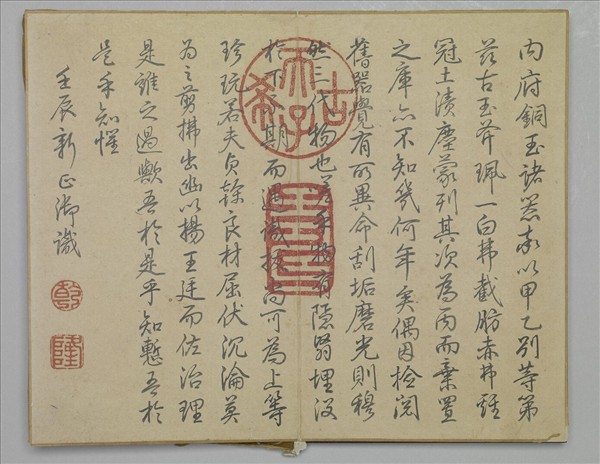 內府銅玉諸器率以甲乙別等第
茲古玉斧珮一白弗截肪赤弗雞
冠土漬塵蒙列其次為丙而棄置
之庫亦不知幾何年矣偶因檢閱
舊器覺有所異命刮垢磨光則穆
然三代物也嗟乎物有隱翳埋沒
於下 期而遇識拔尚可為上等
珍玩若夫貞榦良材屈伏沉淪莫
為之剪拂出幽以揚王廷而佐治理
是誰之過歟吾於是乎知慙吾於
是乎知懼
壬辰新正御識
乾
隆
古希天子